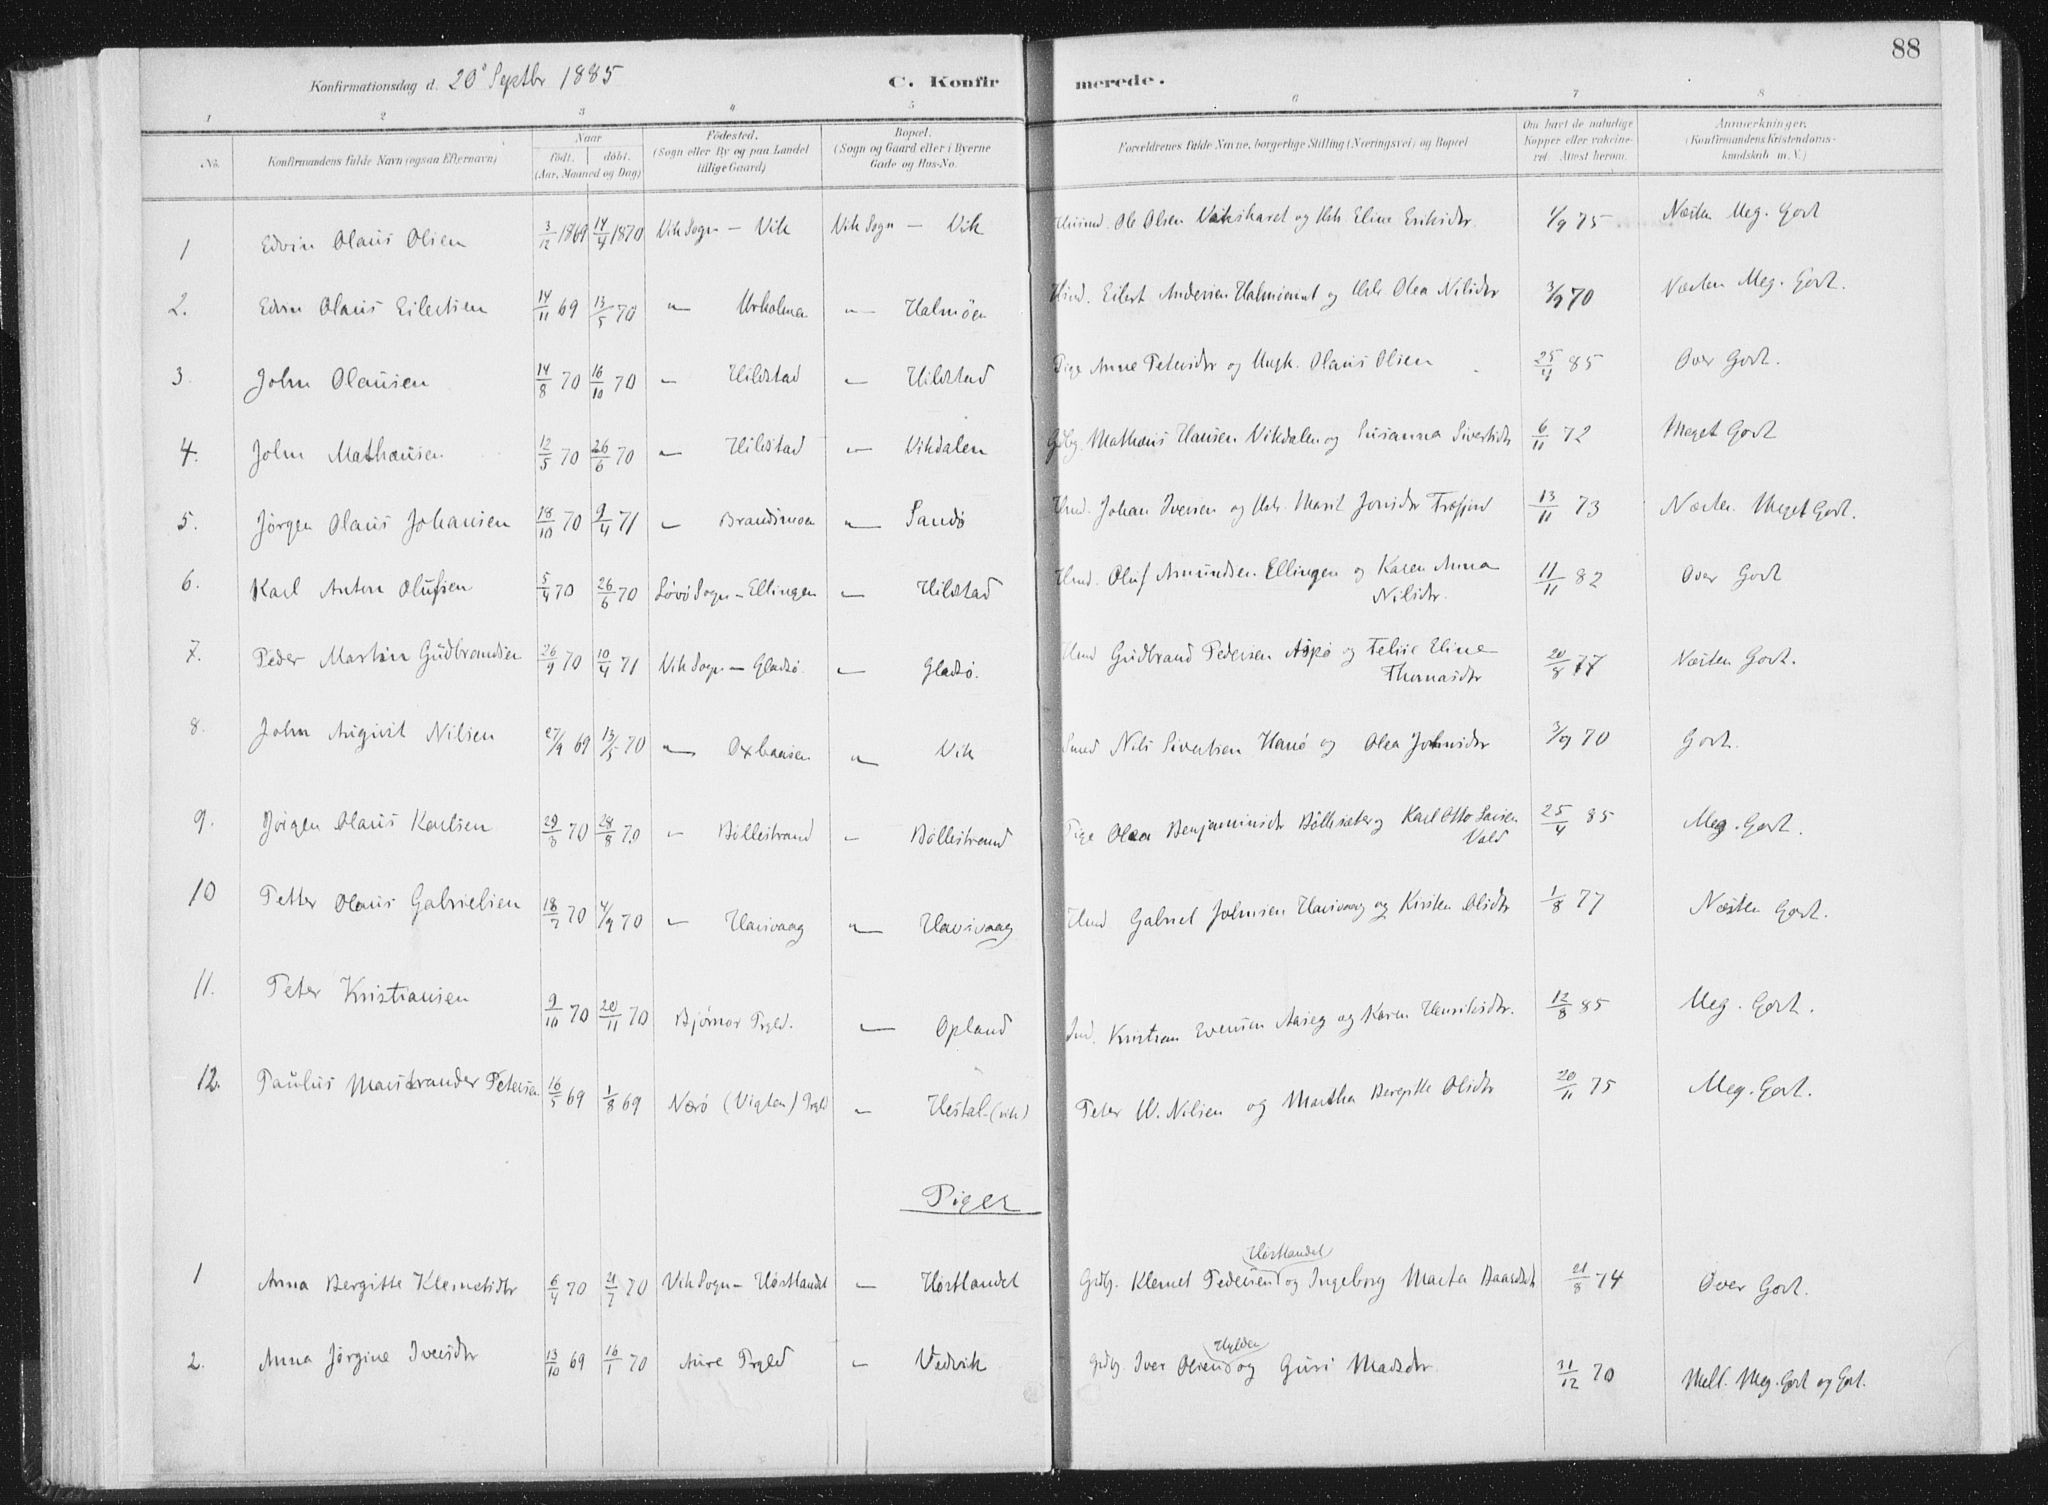 88
Konfirmationsdag d. 20de Septbr 1885 C. Konfirmerede.
1 2 3 4 5 6 7 8
No. Konfirmandens fulde Navn (ogsaa Efternavn) Naar födt. döbt. (Aar, Maaned og Dag) Födested. (Sogn eller By og paa Landet tillige Gaard) Bopæl. (Sogn og Gaard eller i Byerne Gade og Hus-No. Forældrenes fulde Navne, borgerlige Stilling (Næringsvei) og Bopæl Om havt de naturlige Kopper eller vakcineret. Attest herom. Anmærkninger. (Konfirmandens Kristendomskundskab m. V.)
1 Edvin Olaus Olsen 3/12 1869 14/4 1870 Vik Sogn — Vik Vik Sogn — Vik Husmd. Ole Olsen Vikskaret og Hstr. Eline Eriksdtr. 4/9 75 Næsten Meg. Godt
2. Edvin Olaus Eilertsen 14/11 69 13/5 70 " Urholmen " Halmöen Hmd. Eilert Andersen og Hstr Olea Nilsdtr 3/9 70 Næsten Meg. Godt.
3. John Olausen 14/8 70 16/10 70 " Hildstad " Hildstad Pige Anne Petersdtr og Ungk. Olaus Olsen 25/4 85 Over Godt.
4. John Mathæusen 12/5 70 26/6 70 " Hildstad " Vikdalen Gdbg. Mathæus Hansen Vikdalen og Susanna Sivertsdtr 6/11 72 Meget Godt
5. Jörgen Olaus Johansen 18/10 70 9/4 71 " Brandsmoen " Sandö Hmd. Johan Iversen og Hstr. Marit Jonsdtr 13/11 73 Næsten Meget Godt.
6. Karl Anton Olufsen 5/4 70 26/6 70 Lövö Sogn — Ellingen " Hildstad Hmd. Oluf Amundsen Ellingen og Karen Anna Nilsdtr. 11/11 82 Over Godt
7. Peder Martin Gudbrandsen 26/9 70 10/4 71 Vik Sogn — Gladsö. " Gladsö. Hmd Gudbrand Pedersen Aspö og Felise Eline Thomasdtr 20/8 77 Næsten Godt.
8. John August Nilsen 27/9 69 13/5 70 " Oxbaasen " Vik Nils Sivertsen og Olea Johnsdtr 3/9 70 Godt.
9. Jörgen Olaus Karlsen 29/3 70 28/8 70 " Böllestrand " Böllestrand Pige Olea Benjaminsdtr Böllesæter og Karl Otto Vald 25/4 85 Meg. Godt.
10 Petter Olaus Gabrielsen 18/7 70 4/9 70 " Hausvaag " Hausvaag Hmd Gabriel Johnsen Hausvaag og Kirsten Olsdtr 1/8 77 Næsten Godt.
11. Peter Kristiansen 9/10 70 20/11 70 Björnör Prgld. " Opland Ind. Kristian Evensen Aaseg og Karen Henriksdtr. 12/8 85 Meg. Godt.
12. Paulus Maustrander Petersen 16/5 69 1/8 69 Nærö (Vigten) Prgld " Hestal (vik) Peter W. Nilsen og Martha Bergitte Olsdtr 20/11 75 Meg. Godt.
Piger
1 Anna Bergitte Klemetsdtr 6/4 70 21/7 70 Vik Sogn — Horstlandet " Horstlandet Gdbg. Klemet Pedersen Horstlandet og Ingeborg Marta Baardsdtr 21/8 74 Over Godt.
2. Anna Jörgine Iversdtr 13/10 69 16/1 70 Aure Prgld " Vedvik Gdbg. Iver Olsen Hylden og Guri Madsdtr. 31/12 70 Mell. Meg. Godt og Godt.